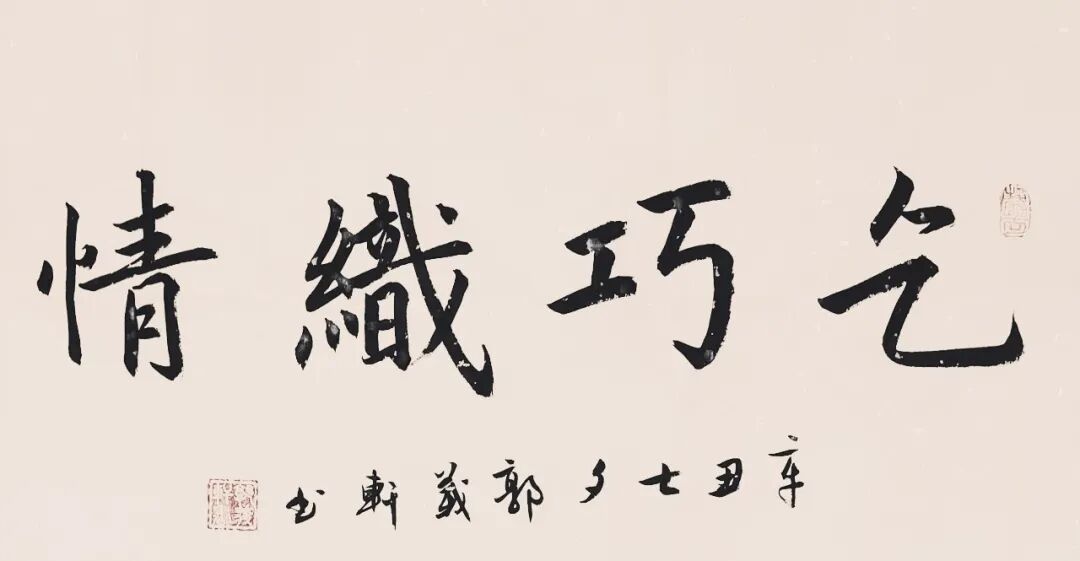 乞巧織情
辛丑七夕郭義軒书